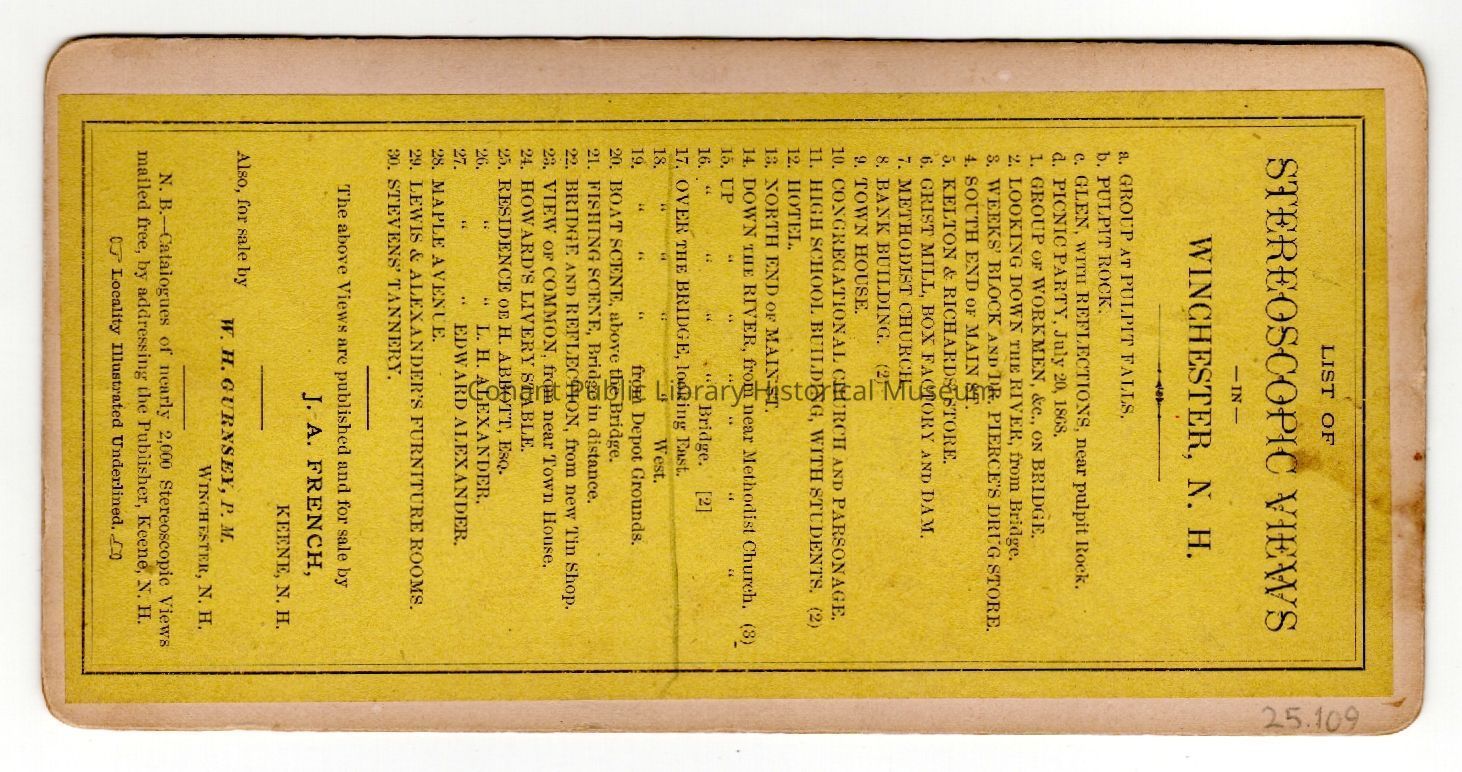 LIST OF
STEREOSCOPIC VIEWS
—IN—
WINCHESTER, N. H.
a. GROUP AT PULPIT FALLS.
b. PULPIT ROCK.
c. GLEN, WITH REFLECTIONS, near pulpit Rock.
d. PICNIC PARTY, July 20, 1868.
1. GROUP OF WORKMEN, &c., ON BRIDGE.
2. LOOKING DOWN THE RIVER, from Bridge.
3. WEEKS' BLOCK AND DR. PIERCE'S DRUG STORE.
4. SOUTH END OF MAIN ST.
5. KELTON & RICHARDS' STORE.
6. GRIST MILL, BOX FACTORY AND DAM.
7. METHODIST CHURCH.
8. BANK BUILDING. (2)
9. TOWN HOUSE.
10. CONGREGATIONAL CHURCH AND PARSONAGE.
11. HIGH SCHOOL BUILDING, WITH STUDENTS. (2)
12. HOTEL.
13. NORTH END OF MAIN ST.
14. DOWN THE RIVER, from near Methodist Church. (3)
15. UP " " " " " "
16. " " " " Bridge. [2]
17. OVER THE BRIDGE, looking East.
18. " " " " West.
19. " " " from Depot Grounds.
20. BOAT SCENE, above the Bridge.
21. FISHING SCENE, Bridge in distance.
22. BRIDGE AND REFLECTION, from new Tin Shop.
23. VIEW OF COMMON, from near Town House.
24. HOWARD'S LIVERY STABLE.
25. RESIDENCE OF H. ABBOTT, ESQ.
26. " " L. H. ALEXANDER.
27. " " EDWARD ALEXANDER.
28. MAPLE AVENUE.
29. LEWIS & ALEXANDER'S FURNITURE ROOMS.
30. STEVENS' TANNERY.
The above Views are published and for sale by
J. A. FRENCH,
KEENE, N. H.
Also, for sale by
W. H. GURNSEY, P. M.
WINCHESTER, N. H.
N. B.—Catalogues of nearly 2,000 Stereoscopic Views
mailed free, by addressing the Publisher, Keene, N. H.
☞ Locality Illustrated Underlined. ☜
25.109
Conant Public Library Historical Museum